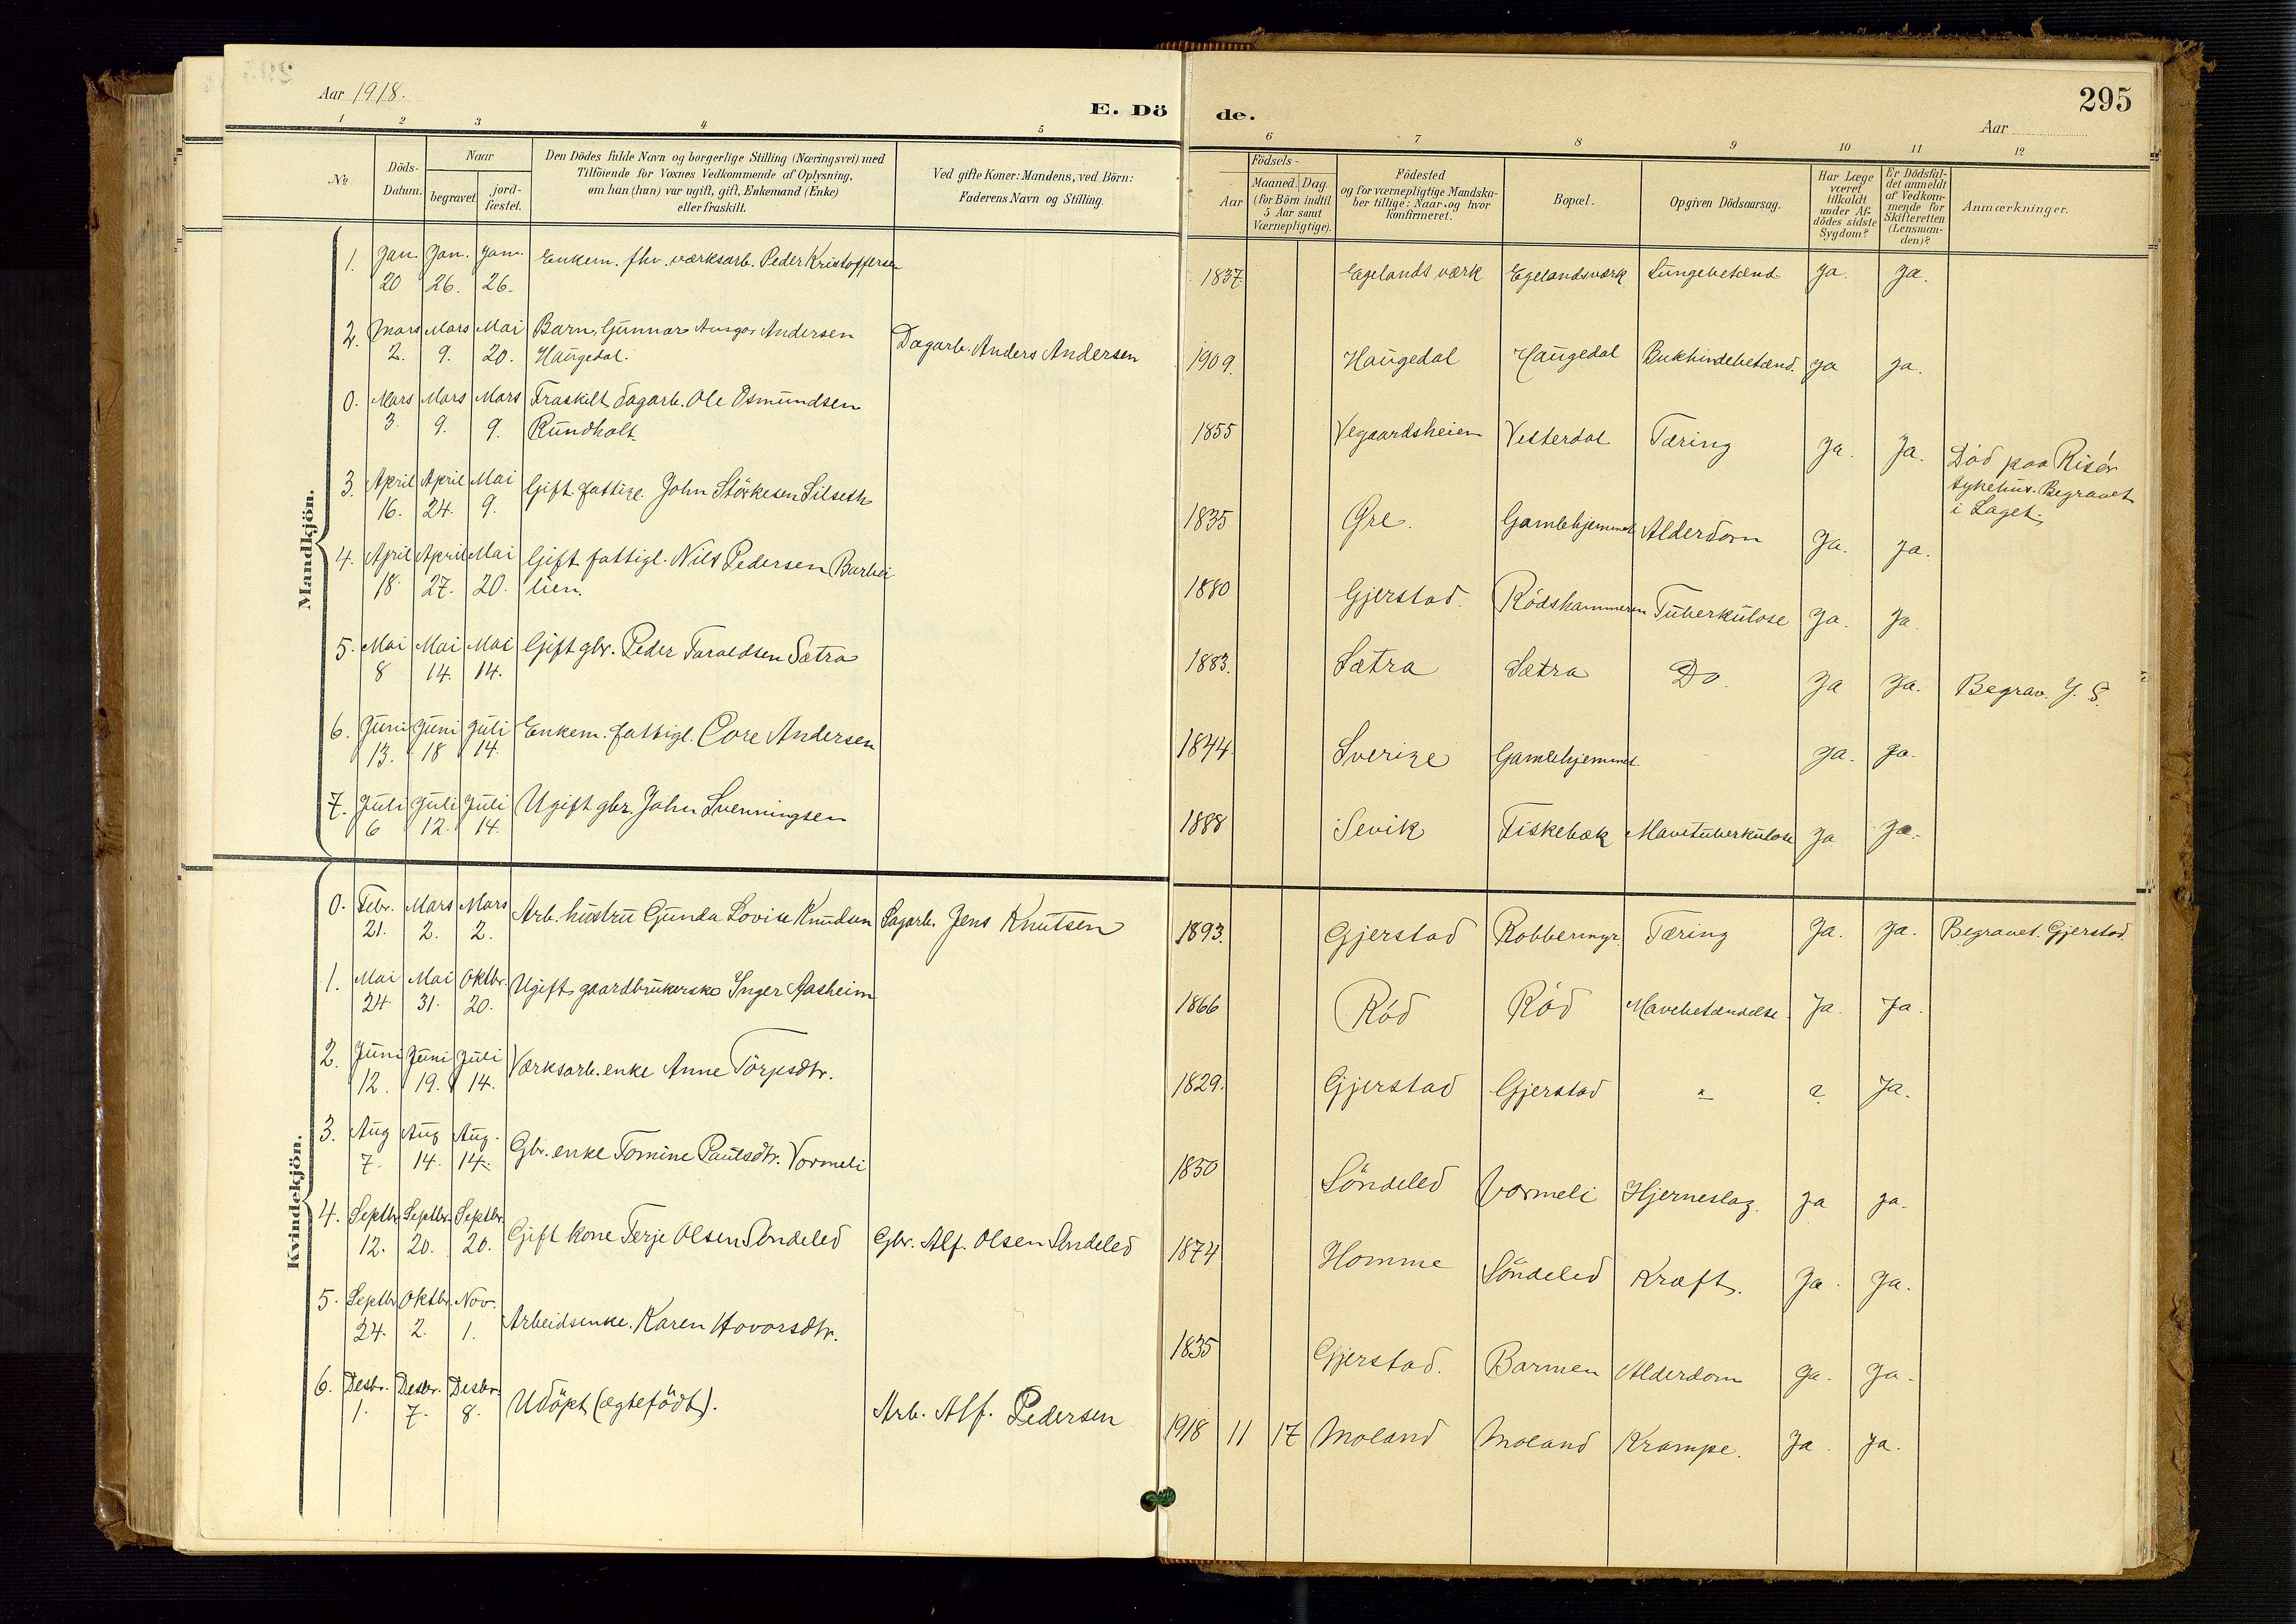 Aar 1918.
E. Döde.
295
Aar
1 2 3 4 5 6 7 8 9 10 11 12
No
Döds-Datum.
Naar
begravet
jord-fæstet.
Den Dödes fulde Navn og borgerlige Stilling (Næringsvei) med
Tilföiende for Voxnes Vedkommende af Oplysning,
om han (hun) var ugift, gift, Enkemand (Enke)
eller fraskilt.
Ved gifte Koner: Mandens, ved Börn:
Faderens Navn og Stilling.
Födsels-
Aar
Maaned. Dag.
(for Börn indtil
5 Aar samt
Værnepligtige).
Födested
og for værnepligtige Mandska-
ber tillige: Naar og hvor
konfirmeret.
Bopæl.
Opgiven Dödsaarsag.
Har Læge
været
tilkaldt
under Af-
dödes sidste
Sygdom?
Er Dödsfal-
det anmeldt
af Vedkom-
mende for
Skifteretten
(Lensman-
den)?
Anmærkninger.
Mandkjön.
1. Jan. 20 Jan. 26. Jan. 26. Enkem. fhv. værksarb. Peder Kristoffersen 1837. Egelands værk Egelandsværk Lungebetænd. Ja. Ja.
2. Mars 2. Mars 9. Mai 20. Barn, Gunnar Ansgar Andersen
Haugedal. Dagarb. Anders Andersen 1909. Haugedal Haugedal Bukhindebetænd. Ja Ja.
0. Mars 3. Mars 9. Mars 9. Fraskilt dagarb. Ole Osmundsen
Rundholt. 1855 Vegaardsheien Vesterdal Tæring Ja. Ja. Död paa Risör
sykehus. Begravet
i Laget.
3. April 16. April 24. Mai 9. Gift fattigl. John Störkesen Silseth 1835 Øre. Gamlehjemmet Alderdom Ja. Ja.
4. April 18. April 27. Mai 20. Gift fattigl. Nils Pedersen Barlei
lien. 1880 Gjerstad. Rödshammeren Tuberkulose Ja. Ja.
5. Mai 8 Mai 14. Mai 14. Gift gbr. Peder Taraldsen Sætra 1883. Sætra Sætra Do. Ja Ja. Begrav. G. S.
6. Juni 13. Juni 18 Juli 14. Enkem. fattigl. Core Andersen 1844. Sverige Gamlehjemmet. Ja. Ja.
7. Juli 6 Juli 12. Juli 14. Ugift gbr. John Svenningsen 1888 Sevik Fiskebæk Mavetuberkulose Ja Ja.
Kvindekjön.
0. Febr. 21. Mars 2. Mars 2. Arb. hustru Gunda Lovise Knudsen Sagarb. Jens Knutsen 1893. Gjerstad Robbermyr. Tæring Ja. Ja. Begravet. Gjerstad.
1. Mai 24 Mai 31. Oktbr. 20. Ugift gaardbrukerske Inger Aasheim 1866 Röd Röd Mavebetændelse Ja. Ja.
2. Juni 12. Juni 19. Juli 14. Værksarb. enke Anne Törjesdtr. 1829. Gjerstad Gjerstad " ? Ja.
3. Aug 7. Aug 14. Aug. 14. Gbr. enke Tomine Paulsdtr. Vormeli 1850 Söndeled Vormeli Hjerneslag. Ja Ja.
4. Septbr. 12. Septbr. 20. Septbr. 20. Gift kone Terje Olsen Söndeled Gbr. Alf. Olsen Söndeled 1874 Homme Söndeled Kræft. Ja. Ja.
5. Septbr. 24. Oktbr. 2. Nov. 1. Arbeidsenke. Karen Hovorsdtr. 1835 Gjerstad. Barmen Alderdom Ja. Ja.
6. Desbr. 1. Desbr. 7. Desbr. 8. Udöpt (ægtefödt). Arb. Alf. Pedersen 1918 11 17 Moland Moland Krampe. Ja. Ja.